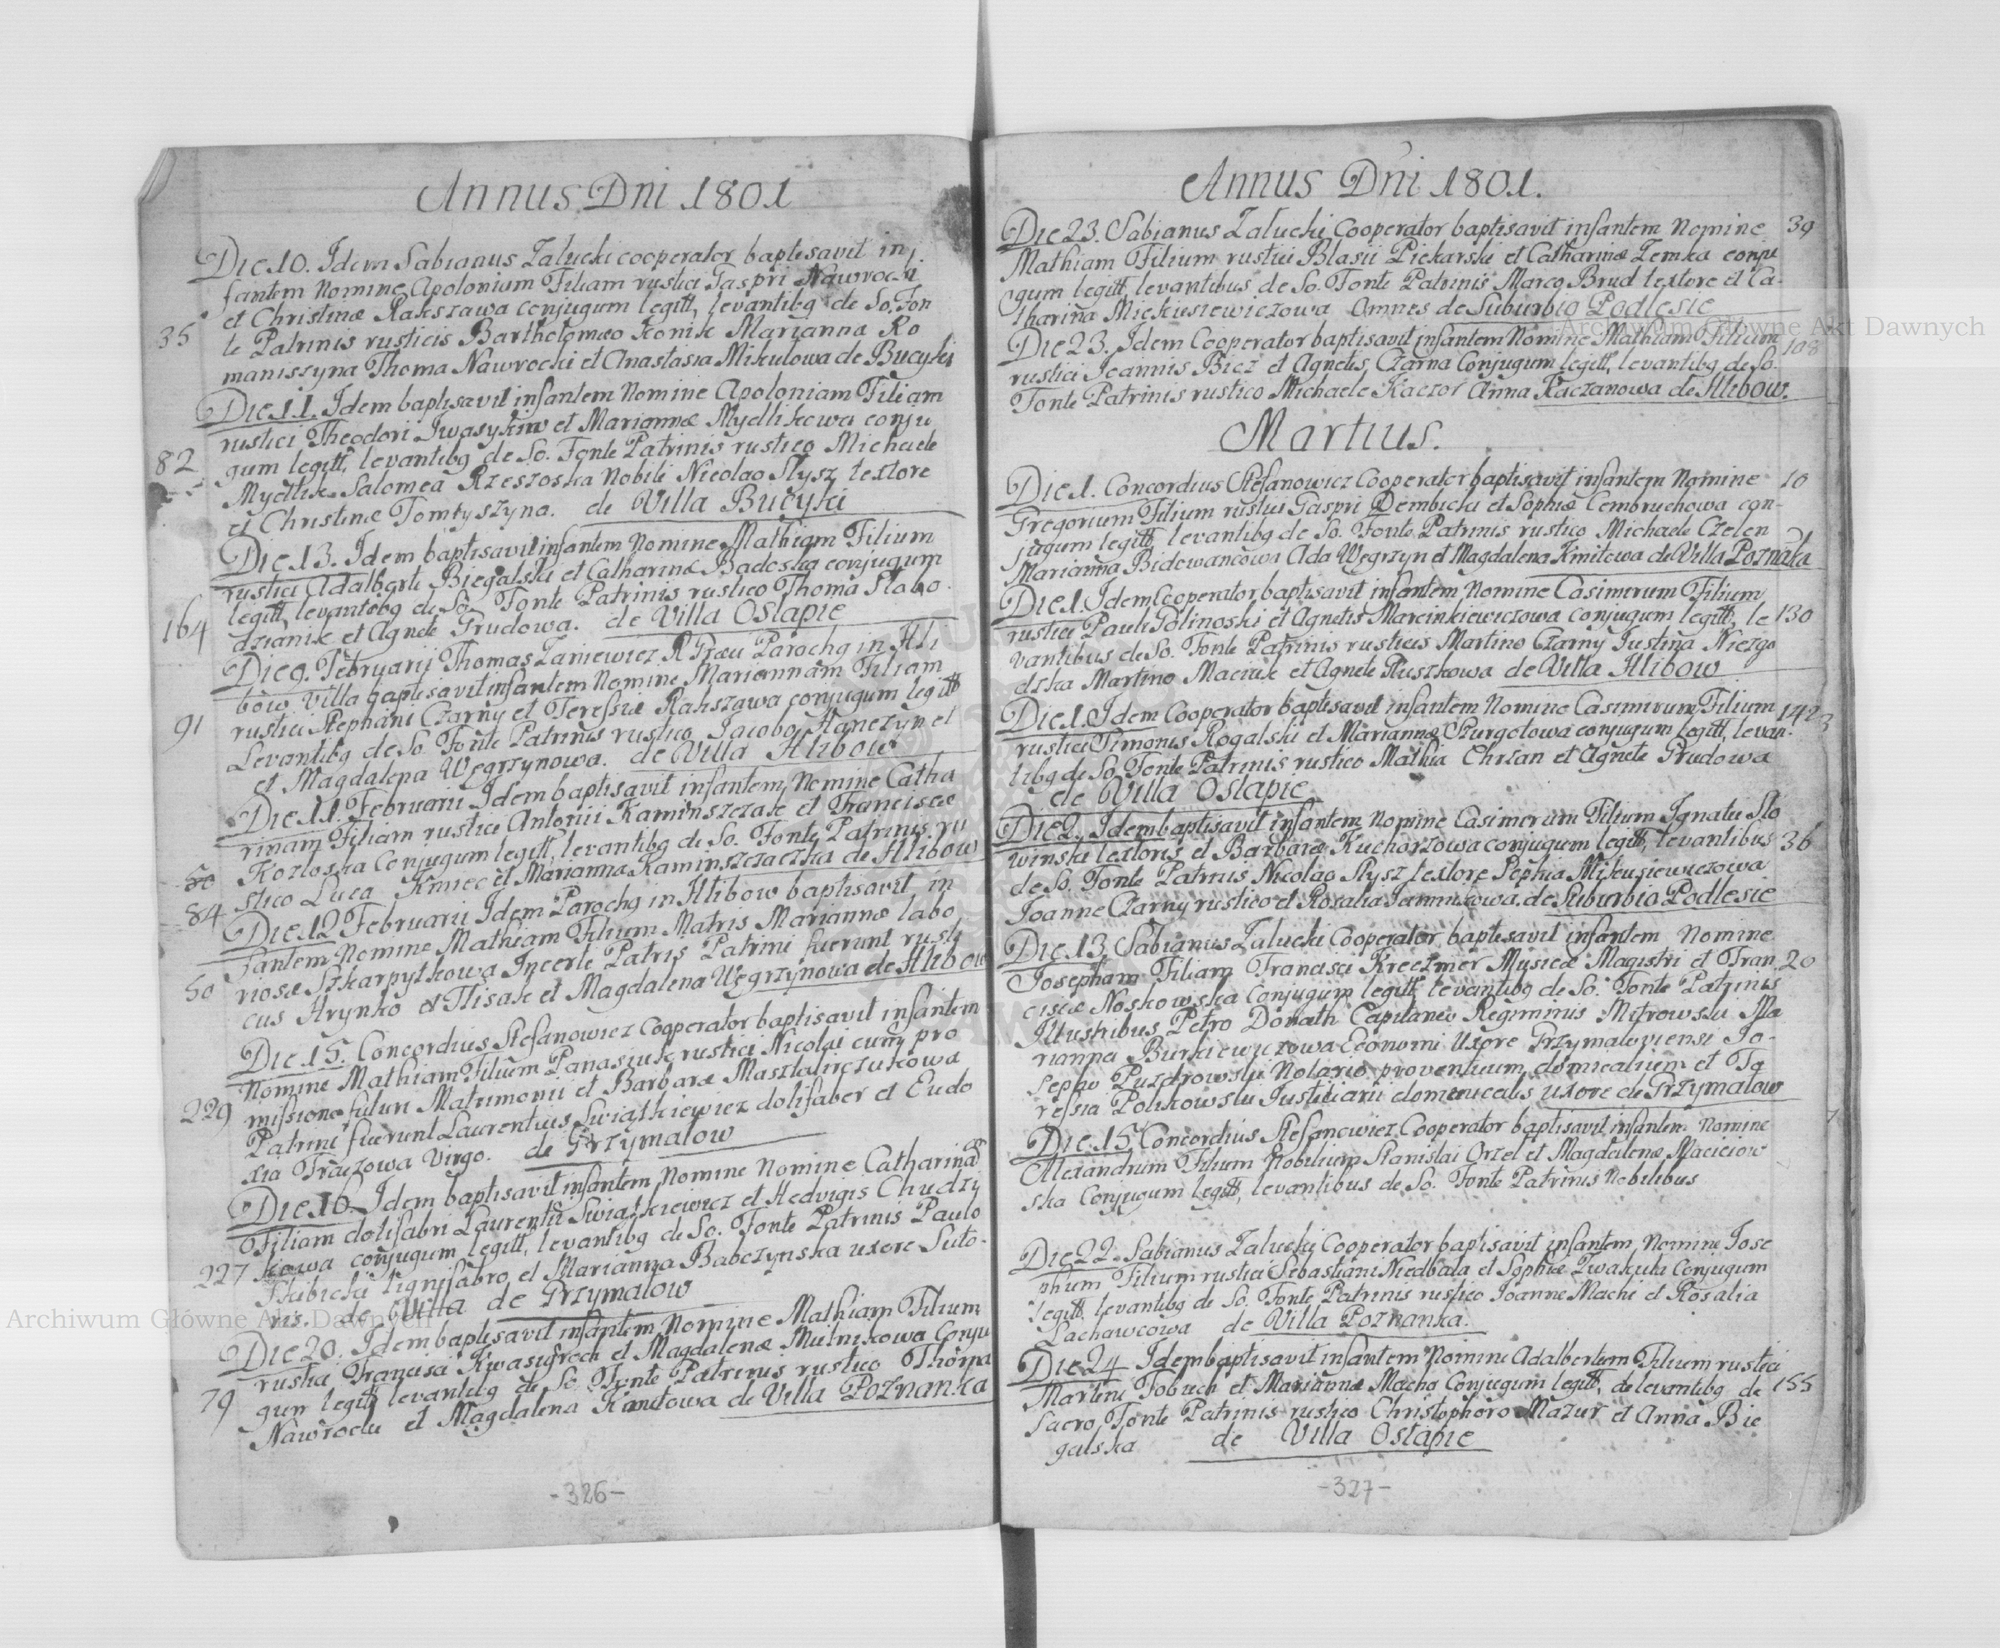 Annus Dni 1801
Die 10. Idem Sabianus Zalucki cooperator baptisavit in
fantem Nomine Apolonium Filiam rustici Gaspri Nawrocki
et Christinæ Rakszawa conjugum legitt, levantibq de So. Fon
35 te Patrinis rusticis Bartholomæo Konik Marianna Ro
maniszyna Thoma Nawrocki et Anastasia Mikulowa de Bucyki
Die 11. Idem baptisavit infantem Nomine Apoloniam Filiam
rustici Theodori Iwasykiw et Mariannæ Mydlikowa conju
82 gum legitt, levantibq de So. Fonte Patrinis rustico Michaele
Mydlik Salomea Rzeszoska Nobili Nicolao Slysz textore
et Christinæ Tomtyszyna. de Villa Bucyki
Die 13. Idem baptisavit infantem Nomine Mathiam Filium
rustici Adalberti Biegalski et Catharinæ Badoska conjugum
legitt, levantibq de So. Fonte Patrinis rustico Thoma Slabo
164 dzianik et Agnete Grudowa. de Villa Ostapie
Die 9. Februarij Thomas Zaniewicz R Græci Parochq in Hli
bow Villa baptisavit infantem Nomine Mariannam Filiam
rustici Stephani Czarny et Teressiæ Rakszawa conjugum legitt
91 Levantibq de So. Fonte Patrinis rustico Jacobo Hanczyn et
et Magdalena Wegrzynowa. de Villa Hlibow
Die 11. Februarii Idem baptisavit infantem Nomine Catha
rinam Filiam rustici Antonii Kaminszczak et Franciscæ
Kozloska Conjugum legitt, levantibq de So. Fonte Patrinis ru
50 stico Luca Kmiec et Marianna Kaminszczaczka de Hlibow
84 Die 12 Februarii Idem Parochq in Hlibow baptisavit in
fantem Nomine Mathiam Filium Matris Mariannæ labo
50 riosæ Szkarpytkowa Incerti Patris Patrini fuerunt rusti
cus Hrynko Hlisak et Magdalena Wegrzynowa de Hlibow
Die 15. Concordius Stefanowicz Cooperator baptisavit infantem
Nomine Mathiam Filium Panasiuk rustici Nicolai cum pro
missione futuri Matrimonii et Barbaræ Masztalirczukowa
229 Patrini fuerunt Laurentius Swiatkiewicz dolifaber et Eudo
xia Traczowa Virgo. de Grzymalow
Die 16. Idem baptisavit infantem Nomine Nomine Catharinam
Filiam dolifabri Laurentii Swiatkiewicz et Hedvigis Chudzy
227 kowa conjugum legitt, levantibq de So. Fonte Patrinis Paulo
Hubicki lignifabro et Marianna Babczynska uxore Suto-
ris. de Villa de Grzymalow
Die 20. Idem baptisavit infantem Nomine Mathiam Filium
rustici Francisci Kwasigroch et Magdalenæ Mulnikowa Conju
79 gum legitt levantibq de So. Fonte Patrinis rustico Thoma
Nawrocki et Magdalena Kmitowa de Villa Poznanka
-326-
Annus Dni 1801.
Die 23. Sabianus Zalucki Cooperator baptisavit infantem Nomine 39
Mathiam Filium rustici Blasii Piekarski et Catharinæ Zemka conju
gum legitt, levantibus de So. Fonte Patrinis Marco Brud textore et Ca-
tharina Mickusiewiczowa Omnes de Suburbio Podlesie
Die 23. Idem Cooperator baptisavit infantem Nomine Mathiam Filium 108
rustici Joannis Biez et Agnetis Czarna Conjugum legitt, levantibq de So.
Fonte Patrinis rustico Michaele Kaczor Anna Kaczanowa de Hlibow.
Martius.
Die 1. Concordius Stefanowicz Cooperator baptisavit infantem Nomine 10
Gregorium Filium rustici Gaspri Dembicki et Sophiæ Cembruchowa con-
jugum legitt, levantibq de So. Fonte Patrinis rustico Michaele Czelen
Marianna Bidowancowa Ada Wegrzyn et Magdalena Kmitowa de Villa Poznaka
Die 1. Idem Cooperator baptisavit infantem Nomine Casimirum Filium
rustici Pauli Polinoski et Agnetis Marcinkiewiczowa conjugum legitt, le 130
vantibus de So. Fonte Patrinis rusticis Martino Czarny Justina Niezgo
dzka Martino Maciuk et Agnete Pluszkowa de Villa Hlibow
Die 1. Idem Cooperator baptisavit infantem Nomine Casimirum Filium 142
rustici Simonis Rogalski et Mariannæ Szurgotowa conjugum legitt, levan-
tibq de So. Fonte Patrinis rustico Mathia Chrzan et Agnete Grudowa
de Villa Ostapie
Die 2. Idem baptisavit infantem Nomine Casimirum Filium Ignatii Slo
winski textoris et Barbaræ Kucharzowa conjugum legitt, levantibus 36
de So. Fonte Patrinis Nicolao Slysz textore Sophia Mikusiewiczowa
Joanne Czarny rustico et Rosalia Jaminkowa. de Suburbio Podlesie
Die 13. Sabianus Zalucki Cooperator baptisavit infantem Nomine
Josepham Filiam Francisci Kreczmer Musicæ Magistri et Fran 20
ciscæ Noskowska conjugum legitt levantibq de So. Fonte Patrinis
Illustribus Petro Donath Capitaneo Regiminis Mitrowski Ma
rianna Burkiewiczowa Economi Uxore Grzymaloviensi Jo-
sepho Puzdrowski Notario proventuum domicalium et Te
ressia Polikowski Justiciarii domenicalis uxore de Grzymalow
Die 15 Concordius Stefanowicz Cooperator baptisavit infantem Nomine
Alexandrum Filium Nobilium Stanislai Orzel et Magdalenæ Maciciow
ska Conjugum legitt, levantibus de So. Fonte Patrinis Nobilibus
Die 22. Sabianus Zalucki Cooperator baptisavit infantem Nomine Jose
phum Filium rustici Sebastiani Niedbala et Sophiæ Iwakuki Conjugum
legitt, levantibq de So. Fonte Patrinis rustico Joanne Machi et Rosalia
Lachawcowa de Villa Poznanka.
Die 24 Idem baptisavit infantem Nomine Adalbertum Filium rustici
Martini Tobuch et Mariannæ Macho Conjugum legitt, de levantibq de 155
Sacro Fonte Patrinis rustico Christophoro Mazur et Anna Bie
galska de Villa Ostapie
-327-
Archiwum Główne Akt Dawnych
Archiwum Główne Akt Dawnych